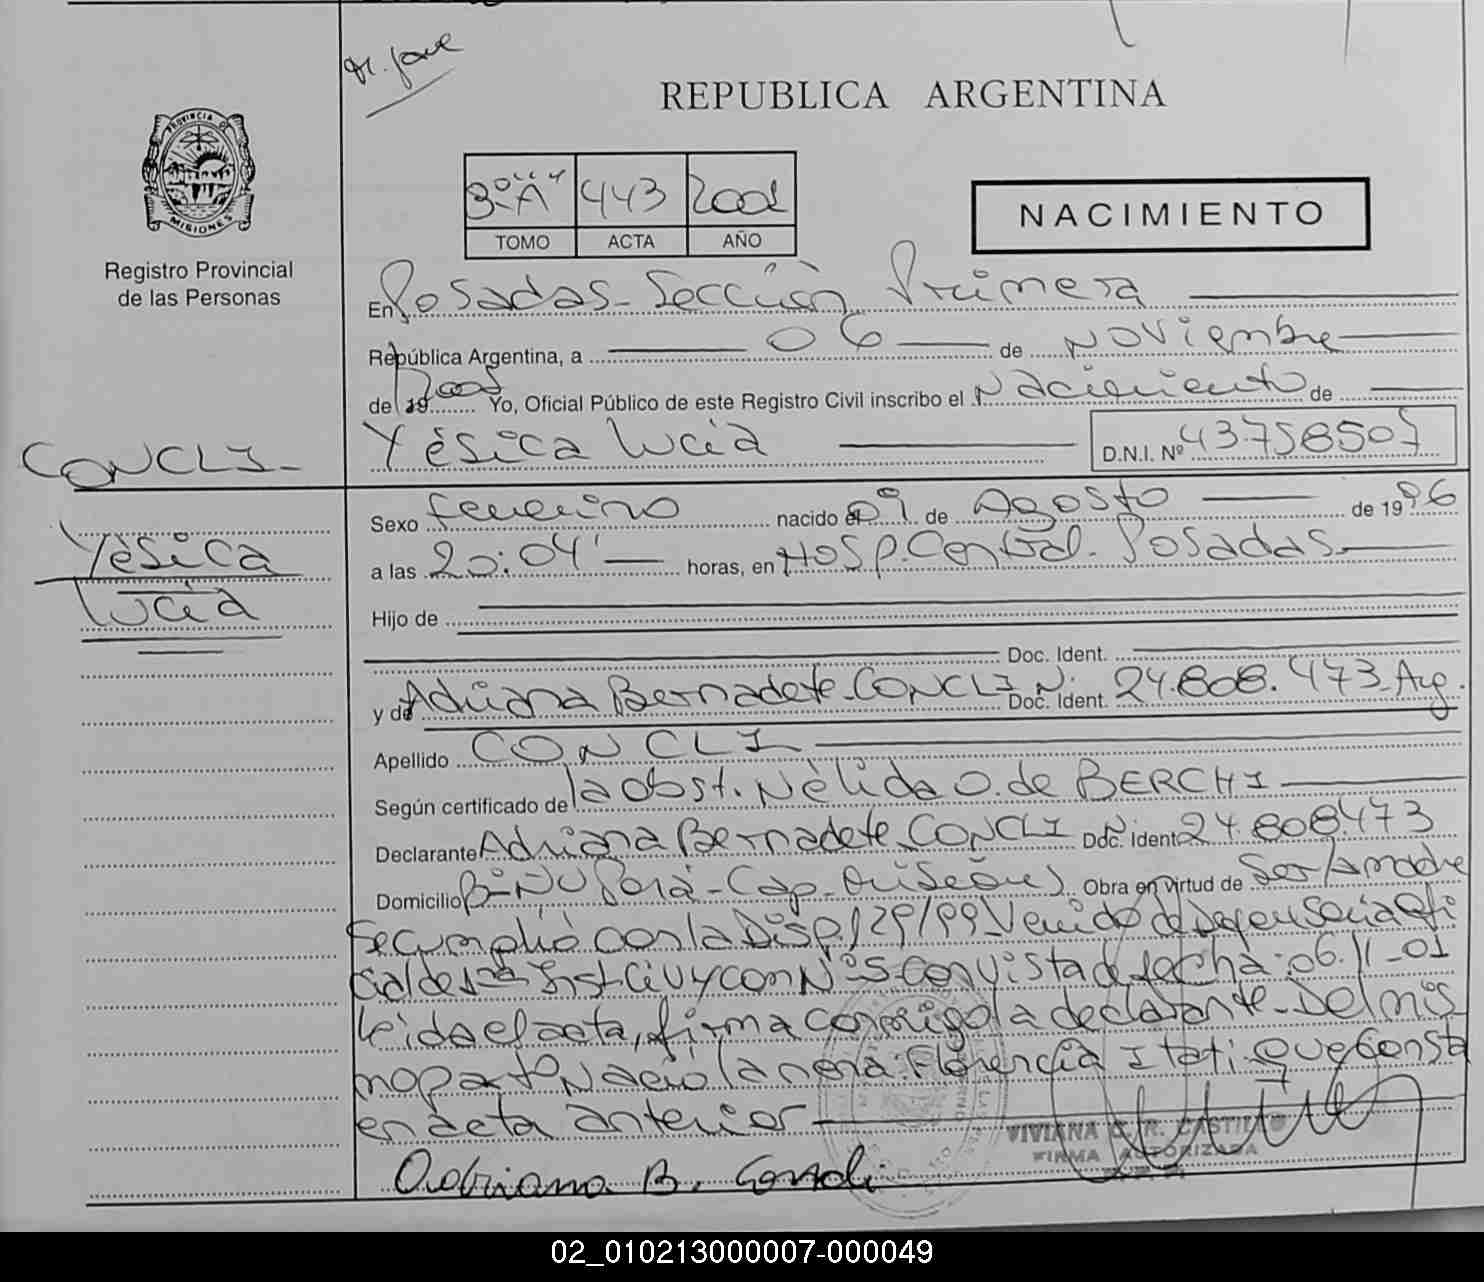 REPUBLICA ARGENTINA
PROVINCIA DE
MISIONES
Registro Provincial
de las Personas
3º "A" 443 2001
TOMO ACTA AÑO
NACIMIENTO
En Posadas - Sección Primera
República Argentina, a 06 de Noviembre
de 19 2001 Yo, Oficial Público de este Registro Civil inscribo el Nacimiento de
Yèsica Lucia D.N.I. Nº 43.758507
CONCLI -
Yèsica
Lucia
Sexo femenino nacido el 09 de Agosto de 1996
a las 20:04' horas, en Hosp. Central - Posadas
Hijo de
Doc. Ident.
y de Adriana Bernadete CONCLI N: Doc. Ident. 24.808.473 - Arg.
Apellido CONCLI
Según certificado de la obst. Nèlida O. de BERCHI
Declarante Adriana Bernadete CONCLI Doc. Ident. 24.808.473
Domicilio Bº Ñu Porà - Cap - Misiones Obra en virtud de Ser la madre
Se cumpliò con la Disp. 129/99 Venido de Defensoria Ofi
cial de Inst. Civ y Com Nº 5 con vista de fecha: 06-11-01
leida el acta, firma conmigo la declarante - Del mis
mo parto Naciò la nena: Florencia Itati. Que Consta
en acta anterior
VIVIANA R. CASTILLO
FIRMA AUTORIZADA
Adriana B. Concli
02_010213000007-000049